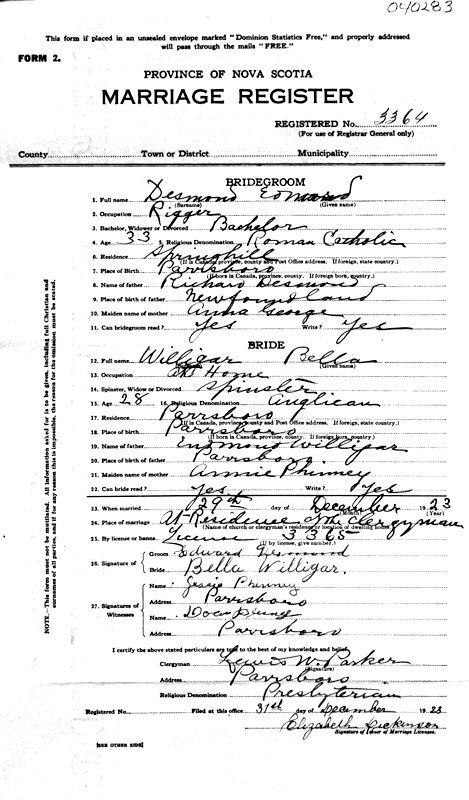 040283
This form if placed in an unsealed envelope marked "Dominion Statistics Free," and properly addressed
will pass through the mails "FREE."
FORM 2.
PROVINCE OF NOVA SCOTIA
MARRIAGE REGISTER
REGISTERED No. 3364
(For use of Registrar General only)
County Town or District Municipality
BRIDEGROOM
1. Full name Desmond Edward
(Surname) (Given name)
2. Occupation Rigger
3. Bachelor, Widower or Divorced Bachelor
4. Age 33 5. Religious Denomination Roman Catholic
6. Residence Springhill
(If in Canada, province, county and Post Office address. If foreign, state country.)
7. Place of Birth Parrsboro
(If born in Canada, province, county. If foreign born, country.)
8. Name of father Richard Desmond
9. Place of birth of father Newfoundland
10. Maiden name of mother Anna George
11. Can bridegroom read? Yes Write? Yes
BRIDE
12. Full name Willigar Bella
(Surname) (Given name)
13. Occupation At Home
14. Spinster, Widow or Divorced Spinster
15. Age 28 16. Religious Denomination Anglican
17. Residence Parrsboro
(If in Canada, province, county and Post Office address. If foreign, state country.)
18. Place of birth Parrsboro
(If born in Canada, province, county. If foreign born, country.)
19. Name of father Willigar
20. Place of birth of father Parrsboro
21. Maiden name of mother Annie Phinney
22. Can bride read? Yes Write? Yes
23. When married 29th day of December 1923
(Month) (Year)
24. Place of marriage At Residence of the Clergyman
(Name of church or clergyman's residence or location of dwelling house.)
25. By license or banns. License 3365
(If by license, give number.)
26. Signature of Groom Edward Desmond
Bride Bella Willigar.
27. Signatures of Witnesses
Name Jessie Phinney
Address Parrsboro
Name
Address Parrsboro
I certify the above stated particulars are true to the best of my knowledge and belief.
Clergyman Lewis W. Parker
(Signature)
Address Parrsboro
Religious Denomination Presbyterian
Registered No. Filed at this office 31st day of December 1923
Elizabeth Dickinson
Signature of Issuer of Marriage Licenses.
[SEE OTHER SIDE]
NOTE.—This form must not be mutilated. All information asked for is to be given, including full Christian and
surnames of all parties, and if for any reason this is impossible, the reason for the omission must be stated.